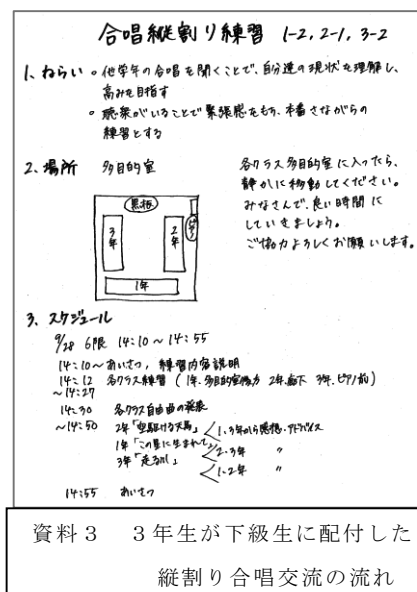 合唱縦割り練習 1-2, 2-1, 3-2
1、ねらい 。他学年の合唱を聞くことで、自分達の現状を理解し、
高みを目指す
。聴衆がいることで緊張感をもち、本番さながらの
練習とする
2、場所 多目的室
各クラス多目的室に入ったら、
静かに移動してください。
みなさんで、良い時間に
していきましょう。
ご協力よろしくお願いします。
黒板
3年
2年
1年
3、スケジュール
9/28 6限 14:10～14:55
14:10～あいさつ、練習内容説明
14:12 各クラス練習 (1年、多目的室 2年、廊下 3年、ピアノ前)
～14:27
14:30 各クラス自由曲の発表
～14:50 2年「空駆ける天馬」 1、3年から感想・アドバイス
1年「この星に生まれて」 2、3年 〃
3年「走る川」 1、2年 〃
14:55 あいさつ
資料3 3年生が下級生に配付した
縦割り合唱交流の流れ